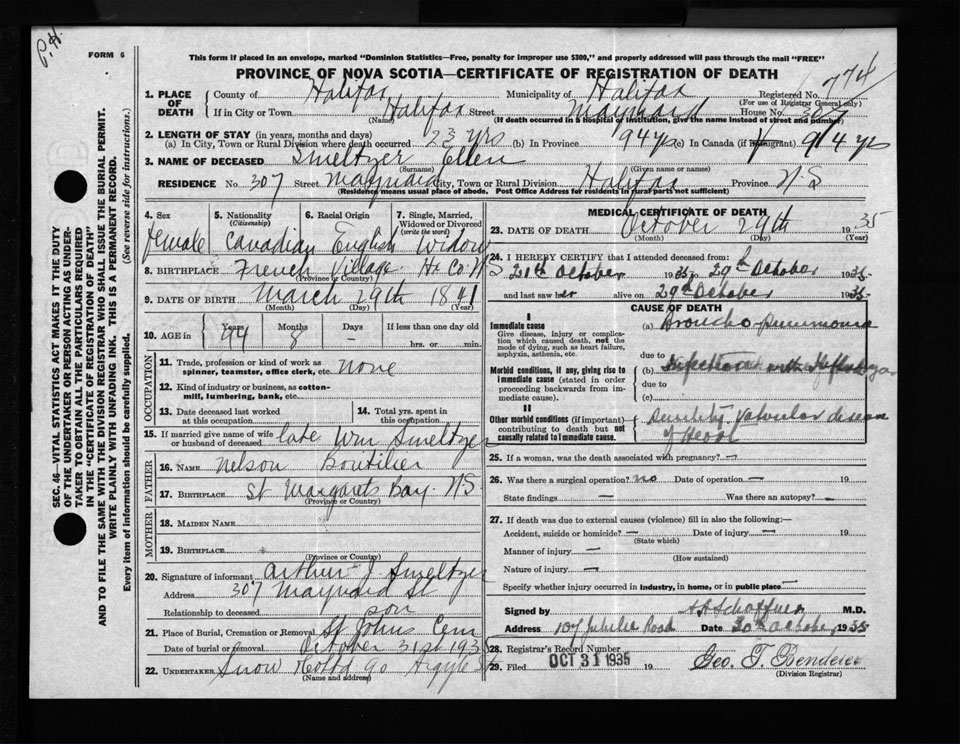 P.H.
FORM 6
This form if placed in an envelope, marked "Dominion Statistics—Free, penalty for improper use $300," and properly addressed will pass through the mail "FREE"
PROVINCE OF NOVA SCOTIA—CERTIFICATE OF REGISTRATION OF DEATH
774
1. PLACE OF DEATH County of Halifax Municipality of Halifax Registered No.
(For use of Registrar General only)
If in City or Town Halifax Street Maynard House No. 307
(Name) (If death occurred in a hospital or institution, give the name instead of street and number)
2. LENGTH OF STAY (in years, months and days)
(a) In City, Town or Rural Division where death occurred 23 yrs (b) In Province 94 yrs (c) In Canada (if immigrant) 94 yrs
3. NAME OF DECEASED Smeltzer Ellen
(Surname) (Given name or names)
RESIDENCE No. 307 Street Maynard City, Town or Rural Division Halifax Province N S
Residence means usual place of abode. Post Office Address for residents in rural parts not sufficient)
SEC. 46—VITAL STATISTICS ACT MAKES IT THE DUTY OF THE UNDERTAKER OR PERSON ACTING AS UNDERTAKER TO OBTAIN ALL THE PARTICULARS REQUIRED IN THE "CERTIFICATE OF REGISTRATION OF DEATH"
AND TO FILE THE SAME WITH THE DIVISION REGISTRAR WHO SHALL ISSUE THE BURIAL PERMIT.
WRITE PLAINLY WITH UNFADING INK. THIS IS A PERMANENT RECORD.
Every item of information should be carefully supplied. (See reverse side for instructions.)
4. Sex 5. Nationality (Citizenship) 6. Racial Origin 7. Single, Married, Widowed or Divorced (write the word)
female Canadian English Widow
8. BIRTHPLACE French Village Hx Co. N S
(Province or Country)
9. DATE OF BIRTH March 29th 1841
(Month) (Day) (Year)
10. AGE in Years Months Days If less than one day old
94 8 — hrs. or min.
OCCUPATION
11. Trade, profession or kind of work as spinner, teamster, office clerk, etc. none
12. Kind of industry or business, as cotton-mill, lumbering, bank, etc.
13. Date deceased last worked at this occupation
14. Total yrs. spent in this occupation
15. If married give name of wife or husband of deceased late Wm Smeltzer
FATHER
16. NAME Nelson Boutilier
17. BIRTHPLACE St Margarets Bay N S
(Province or Country)
MOTHER
18. MAIDEN NAME
19. BIRTHPLACE
(Province or Country)
20. Signature of informant Arthur J. Smeltzer
Address 307 Maynard St
Relationship to deceased son
21. Place of Burial, Cremation or Removal St Johns Cem
Date of burial or removal October 31st 1935
22. UNDERTAKER Snow & Co Ltd 90 Argyle St
(Name and address)
MEDICAL CERTIFICATE OF DEATH
23. DATE OF DEATH October 29th 1935
(Month) (Day) (Year)
24. I HEREBY CERTIFY that I attended deceased from:
21th October 1935 to 29th October 1935
and last saw her alive on 29th October 1935
CAUSE OF DEATH
I
Immediate cause
Give disease, injury or complication which caused death, not the mode of dying, such as heart failure, asphyxia, asthenia, etc.
(a) Broncho-pneumonia
due to
Morbid conditions, if any, giving rise to immediate cause (stated in order proceeding backwards from immediate cause).
(b) Infection with
due to
(c)
II
Other morbid conditions (if important) contributing to death but not causally related to immediate cause.
Senility. Valvular disease of Heart
25. If a woman, was the death associated with pregnancy? —
26. Was there a surgical operation? no Date of operation — 19
State findings — Was there an autopsy? —
27. If death was due to external causes (violence) fill in also the following:—
Accident, suicide or homicide? — Date of injury — 19
(State which)
Manner of injury —
(How sustained)
Nature of injury —
Specify whether injury occurred in industry, in home, or in public place —
Signed by M.D.
Address 107 Jubilee Road Date 30th October 1935
28. Registrar's Record Number
29. Filed OCT 31 1935 19 Geo. T. Bender
(Division Registrar)